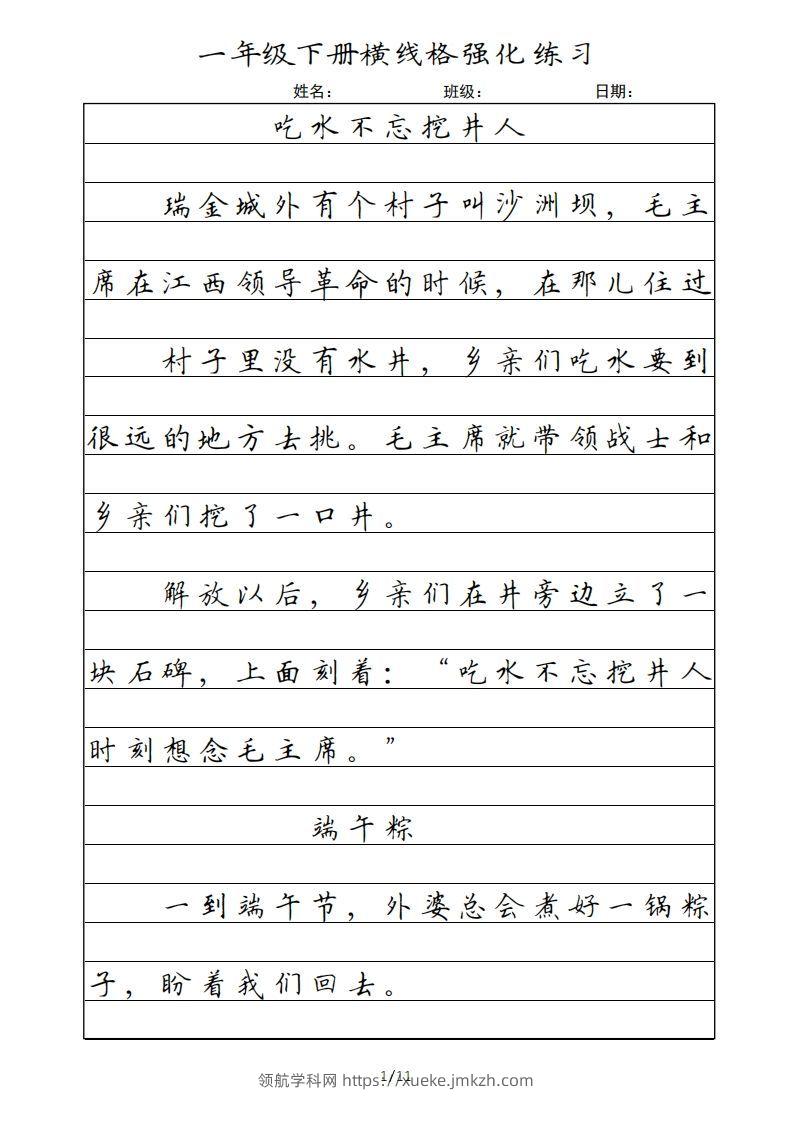 一年级下册横线格强化练习
姓名： 班级： 日期：
吃水不忘挖井人
瑞金城外有个村子叫沙洲坝，毛主
席在江西领导革命的时候，在那儿住过
村子里没有水井，乡亲们吃水要到
很远的地方去挑。毛主席就带领战士和
乡亲们挖了一口井。
解放以后，乡亲们在井旁边立了一
块石碑，上面刻着：“吃水不忘挖井人
时刻想念毛主席。”
端午粽
一到端午节，外婆总会煮好一锅粽
子，盼着我们回去。
1/11
领航学科网 https://xueke.jmkzh.com